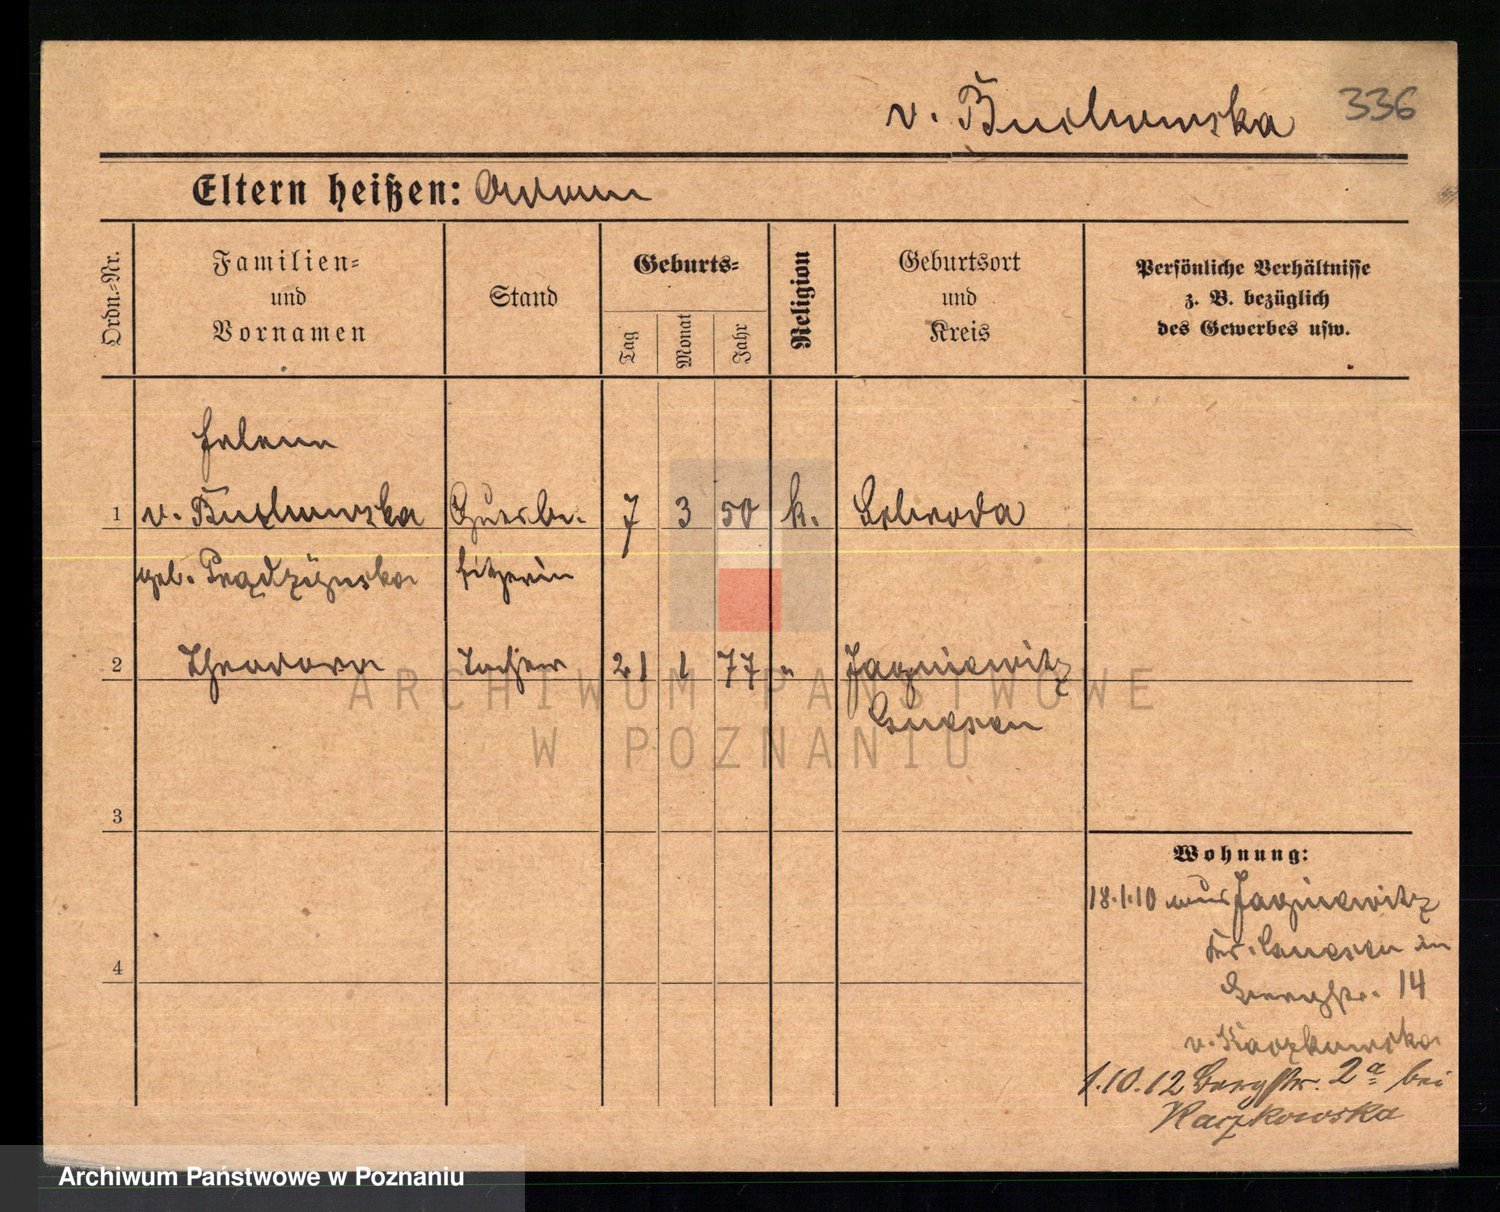 v. Buchowska 336
Eltern heißen:
Ordn.-Nr.
Familien-
und
Vornamen
Stand
Geburts-
Tag
Monat
Jahr
Religion
Geburtsort
und
Kreis
Persönliche Verhältnisse
z. B. bezüglich
des Gewerbes usw.
Helena
1 v. Buchowska Gutsbe- 7 3 50 k. Schroda
geb. Prądzyńska sitzerin
2 Theodora Tochter 21 1 77 " Jagniewitz
Gnesen
3
4
Wohnung:
18.1.10 aus Jagniewitz
Kr. Gnesen in
14
v. Kaczkowska
1.10.12 Bergstr. 2a bei
Kaczkowska
ARCHIWUM PAŃSTWOWE
W POZNANIU
Archiwum Państwowe w Poznaniu